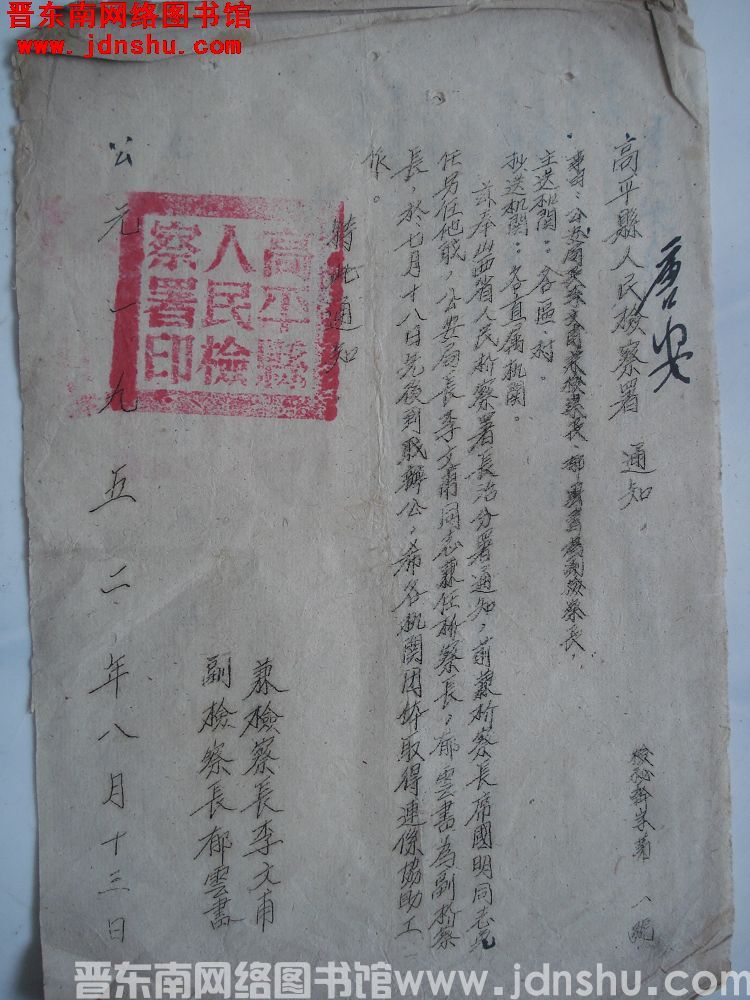 晋东南网络图书馆
www.jdnshu.com
唐安
高平縣人民檢察署 通知
八號
事由：公安局長李文甫兼檢察長，郁雲書為副檢察長，
主送机関：各區、村。
抄送机関：各直属机関。
兹奉山西省人民檢察署長治分署通知，前兼檢察長席國明同志
任另任他职，公安局長李文甫同志兼任檢察長，郁雲書為副檢察
長，於七月十八日先後到职辦公，希各机関团体取得連係協助工
作。
特此通知
高平縣人民檢察署印
兼檢察長李文甫
副檢察長郁雲書
公元一九五二年八月十三日
晋东南网络图书馆www.jdnshu.com